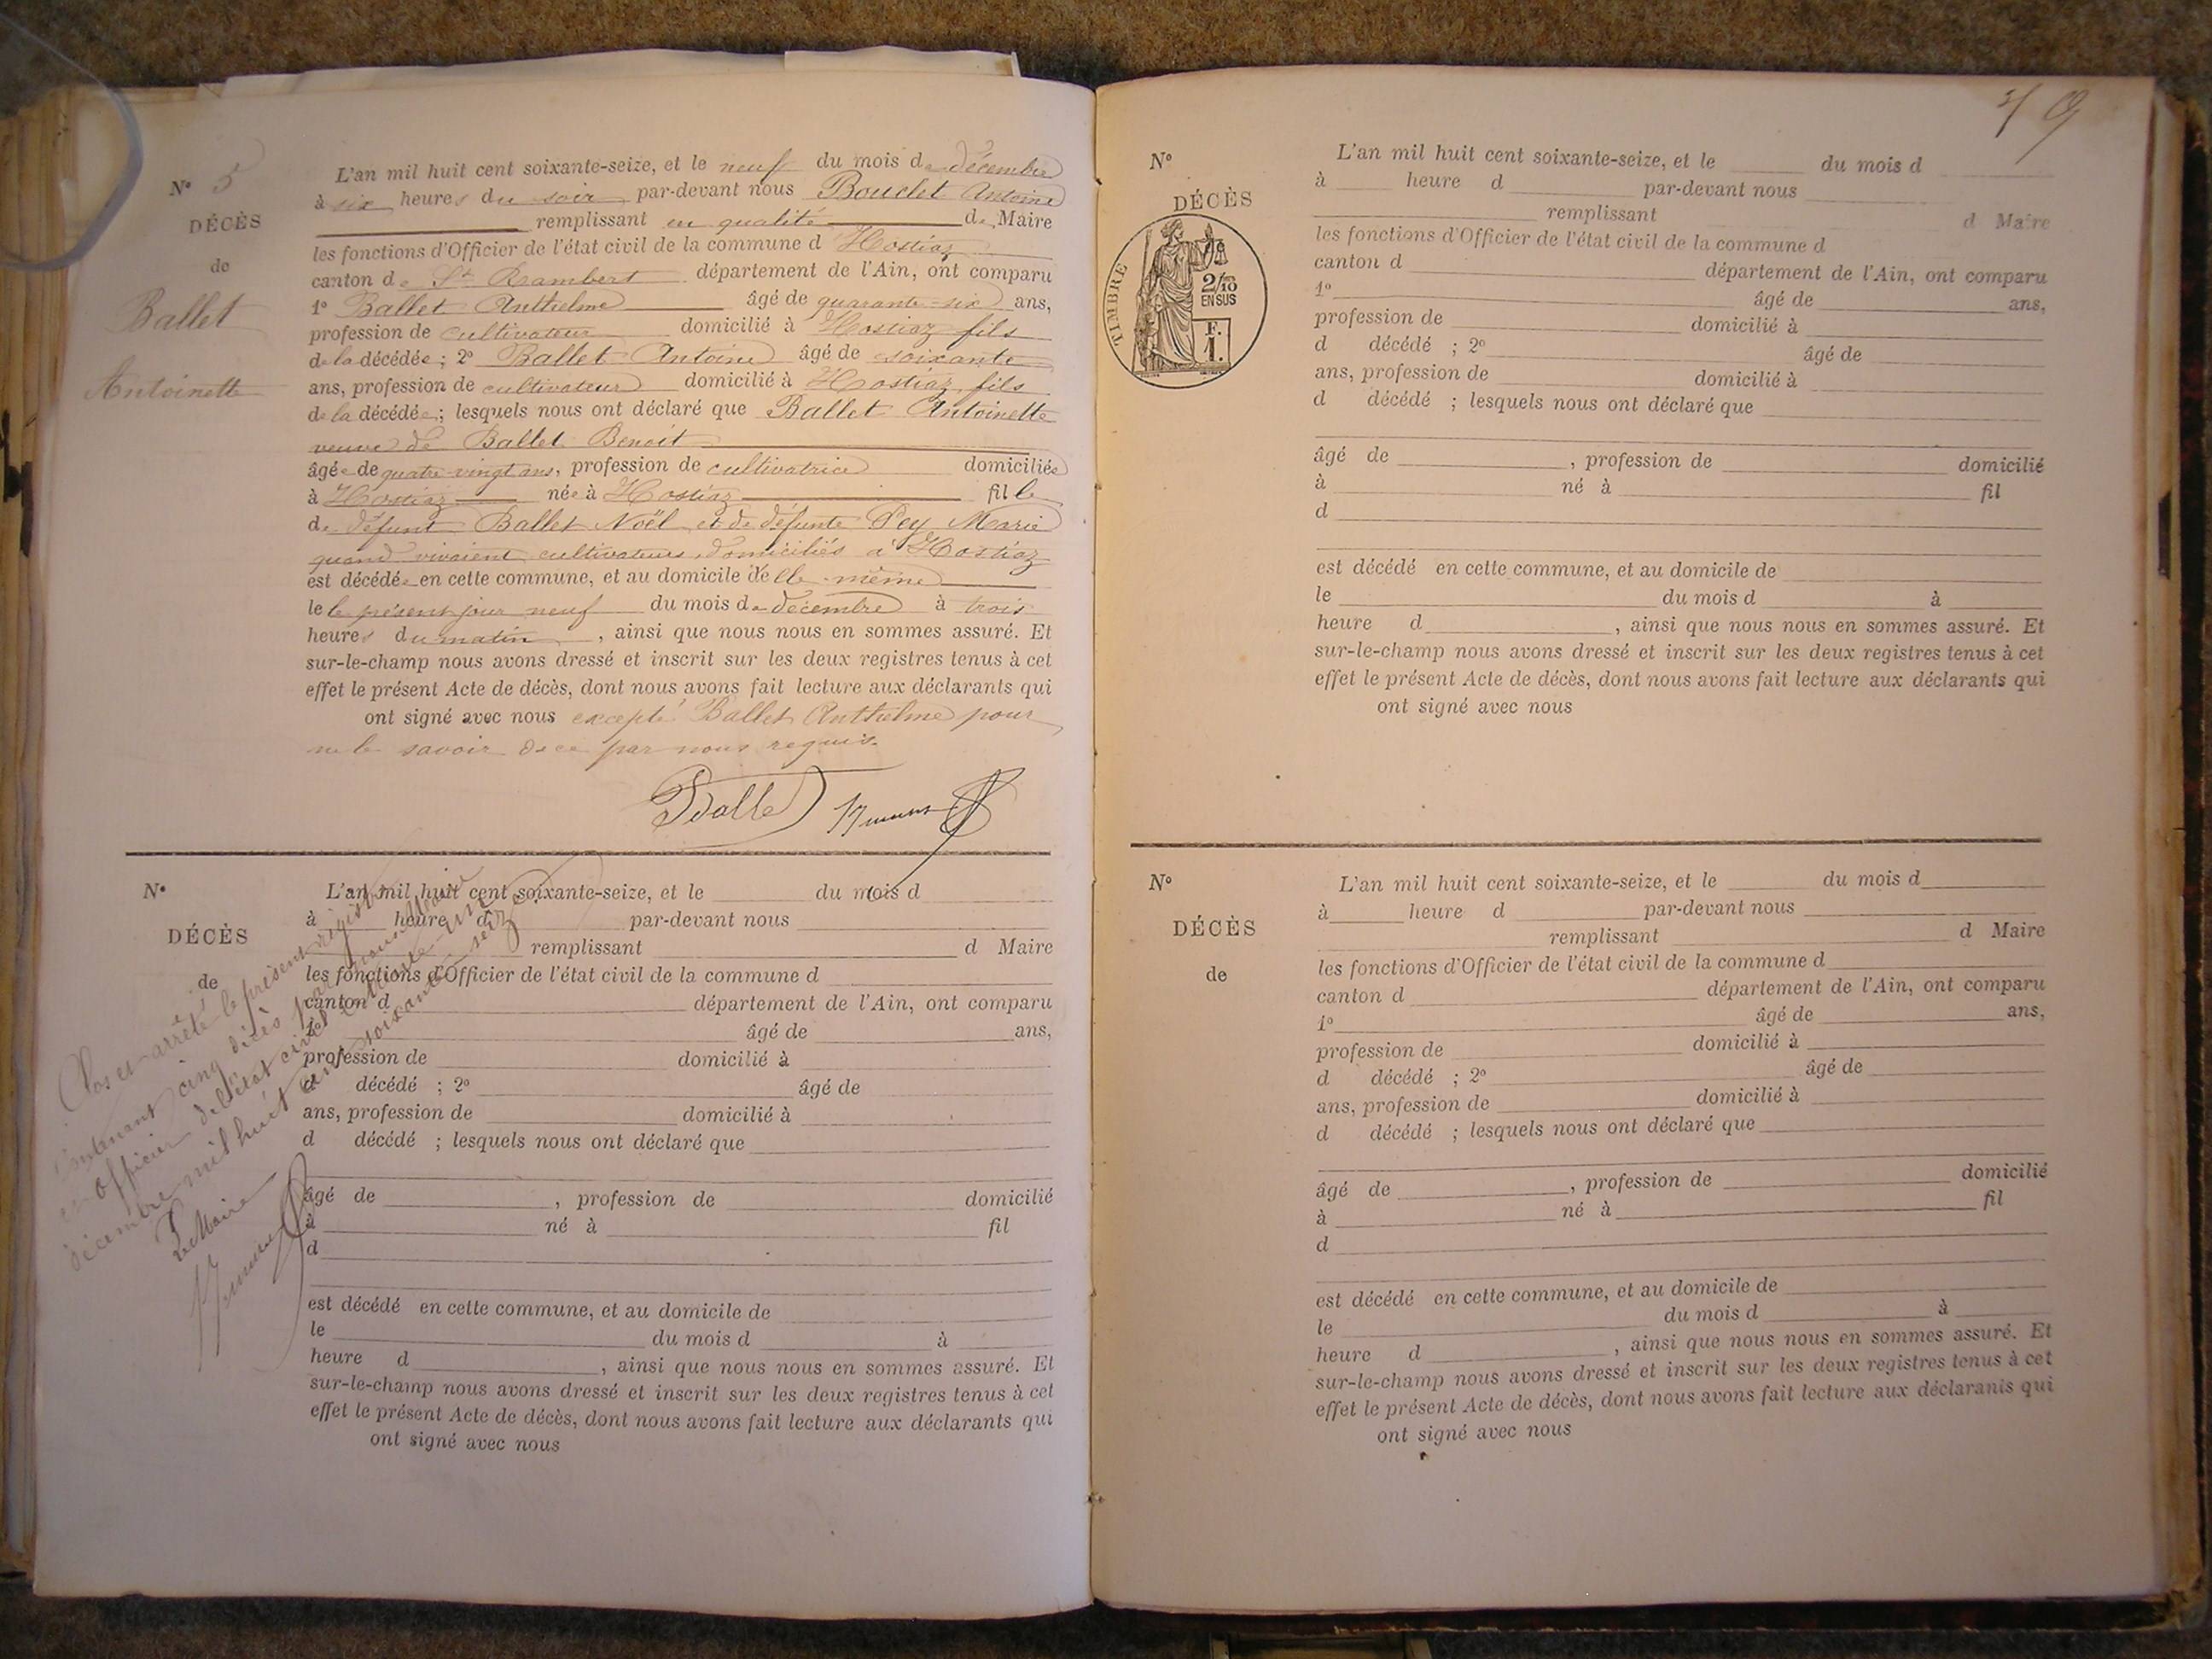 N° 5
DÉCÈS
de
Ballet
Antoinette
L'an mil huit cent soixante-seize, et le neuf du mois de décembre
à six heures du soir par-devant nous Antoine
remplissant en qualité de Maire
les fonctions d'Officier de l'état civil de la commune d Hostiaz
canton de St Rambert département de l'Ain, ont comparu
1° Ballet Anthelme âgé de quarante-six ans,
profession de cultivateur domicilié à Hostiaz fils
de la décédée ; 2° Ballet Antoine âgé de soixante
ans, profession de cultivateur domicilié à Hostiaz fils
de la décédée ; lesquels nous ont déclaré que Ballet Antoinette
veuve de Ballet Benoit
âgée de quatre-vingt ans, profession de cultivatrice domiciliée
à Hostiaz née à Hostiaz fille
de défunt Ballet Noël et de défunte Pey Marie
quand vivaient cultivateurs, domiciliés à Hostiaz
est décédée en cette commune, et au domicile de elle-même
le le présent jour neuf du mois de décembre à trois
heures du matin , ainsi que nous nous en sommes assuré. Et
sur-le-champ nous avons dressé et inscrit sur les deux registres tenus à cet
effet le présent Acte de décès, dont nous avons fait lecture aux déclarants qui
ont signé avec nous excepté Ballet Anthelme pour
ne le savoir de ce par nous requis.
N°
DÉCÈS
de
L'an mil huit cent soixante-seize, et le du mois d
à heure d par-devant nous
remplissant d Maire
les fonctions d'Officier de l'état civil de la commune d
canton d département de l'Ain, ont comparu
1° âgé de ans,
profession de domicilié à
d décédé ; 2° âgé de
ans, profession de domicilié à
d décédé ; lesquels nous ont déclaré que
âgé de , profession de domicilié
à né à fil
d
est décédé en cette commune, et au domicile de
le du mois d à
heure d , ainsi que nous nous en sommes assuré. Et
sur-le-champ nous avons dressé et inscrit sur les deux registres tenus à cet
effet le présent Acte de décès, dont nous avons fait lecture aux déclarants qui
ont signé avec nous
Clos et arrêté le présent registre
contenant cinq décès par nous Maire
et officier de l'état civil le trente-un
décembre mil huit cent soixante-seize
Le Maire
49
N°
DÉCÈS
TIMBRE
2/10
EN SUS
F.
1.
L'an mil huit cent soixante-seize, et le du mois d
à heure d par-devant nous
remplissant d Maire
les fonctions d'Officier de l'état civil de la commune d
canton d département de l'Ain, ont comparu
1° âgé de ans,
profession de domicilié à
d décédé ; 2° âgé de
ans, profession de domicilié à
d décédé ; lesquels nous ont déclaré que
âgé de , profession de domicilié
à né à fil
d
est décédé en cette commune, et au domicile de
le du mois d à
heure d , ainsi que nous nous en sommes assuré. Et
sur-le-champ nous avons dressé et inscrit sur les deux registres tenus à cet
effet le présent Acte de décès, dont nous avons fait lecture aux déclarants qui
ont signé avec nous
N°
DÉCÈS
de
L'an mil huit cent soixante-seize, et le du mois d
à heure d par-devant nous
remplissant d Maire
les fonctions d'Officier de l'état civil de la commune d
canton d département de l'Ain, ont comparu
1° âgé de ans,
profession de domicilié à
d décédé ; 2° âgé de
ans, profession de domicilié à
d décédé ; lesquels nous ont déclaré que
âgé de , profession de domicilié
à né à fil
d
est décédé en cette commune, et au domicile de
le du mois d à
heure d , ainsi que nous nous en sommes assuré. Et
sur-le-champ nous avons dressé et inscrit sur les deux registres tenus à cet
effet le présent Acte de décès, dont nous avons fait lecture aux déclarants qui
ont signé avec nous